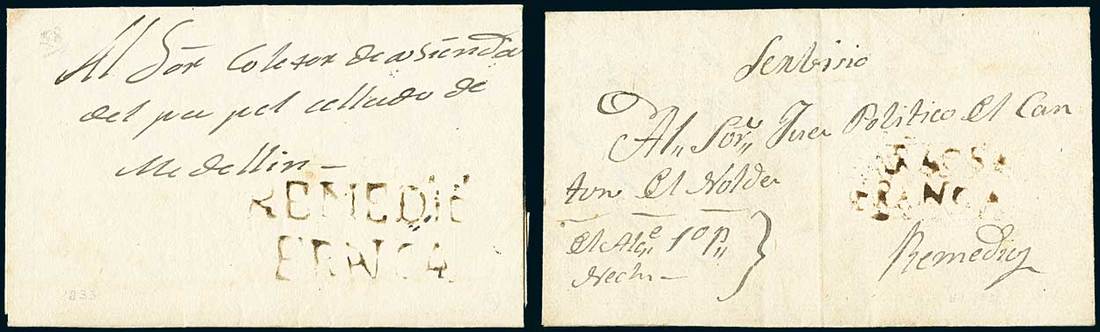 Al Sōr Coletor de
del pa pel cellado de
Medellin
REMEDIE
FRNCA
1833
Serbisio
Al,, Sor,, Juez Politico El Can
ton El Nordes
El Alc,,e 1o P,,
Nechi
FRANCA
Remedios